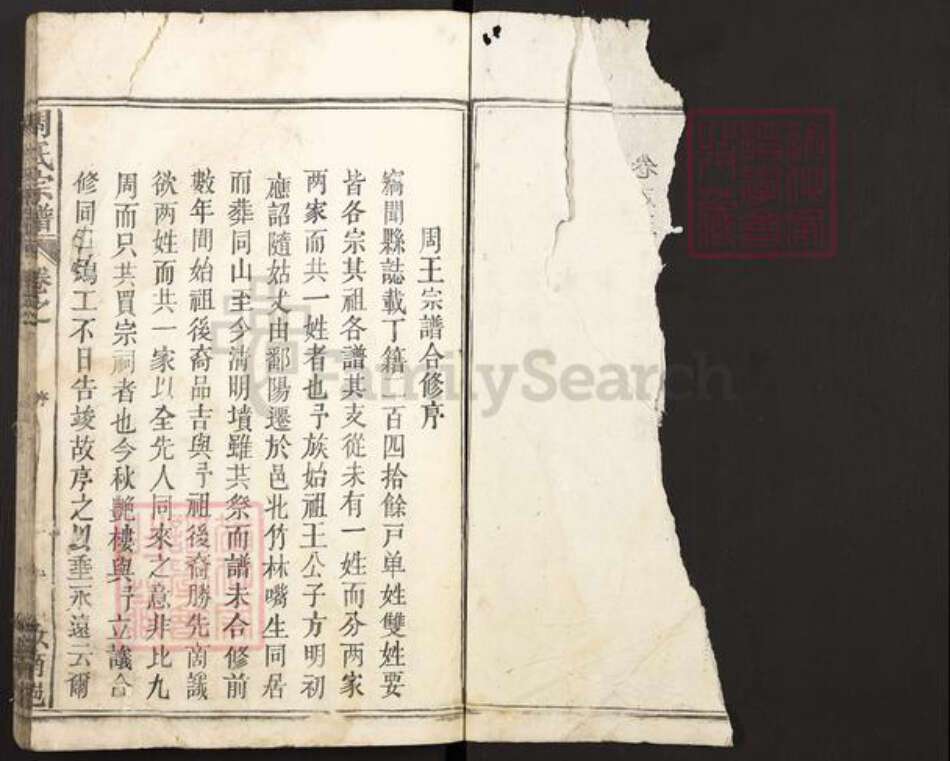 卷
周王宗譜合修序
竊聞縣誌載丁籍二百四拾餘戸单姓雙姓要
皆各宗其祖各譜其支從未有一姓而分两家
两家而共一姓者也予族始祖王公子方明初
應詔隨姑丈由鄱陽遷於邑北竹林嘴生同居
而葬同山至今清明墳雖共祭而譜未合修前
數年間始祖後裔品吉與予祖後裔勝先啇議
欲两姓而共一家以全先人同來之意非比九
周而只共買宗祠者也今秋艶樓與予立議合
修同鳩工不日告竣故序之以垂永遠云爾
周氏宗譜
卷之
序
FamilySearch